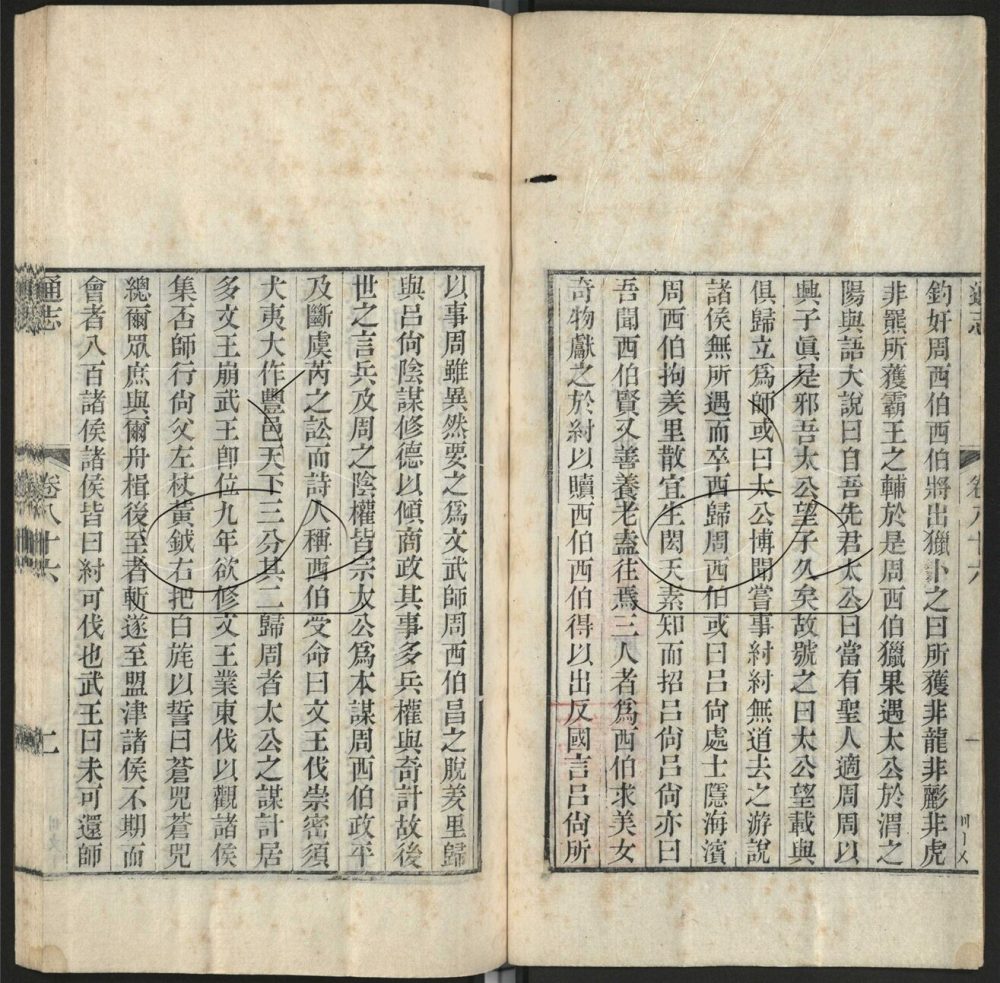 通志 卷八十六 一
釣奸周西伯西伯將出獵卜之曰所獲非龍非彨非虎
非羆所獲霸王之輔於是周西伯獵果遇太公於渭之
陽與語大說曰自吾先君太公曰當有聖人適周周以
興子眞是邪吾太公望子久矣故號之曰太公望載與
俱歸立爲師或曰太公博聞嘗事紂紂無道去之游說
諸侯無所遇而卒西歸周西伯或曰呂尙處士隱海濱
周西伯拘羑里散宜生閎夭素知而招呂尙呂尙亦曰
吾聞西伯賢又善養老盍往焉三人者爲西伯求美女
奇物獻之於紂以贖西伯西伯得以出反國言呂尙所
以事周雖異然要之爲文武師周西伯昌之脫羑里歸
與呂尙陰謀修德以傾商政其事多兵權與奇計故後
世之言兵及周之陰權皆宗太公爲本謀周西伯政平
及斷虞芮之訟而詩人稱西伯受命曰文王伐崇密須
犬夷大作豐邑天下三分其二歸周者太公之謀計居
多文王崩武王卽位九年欲修文王業東伐以觀諸侯
集否師行尙父左杖黃鉞右把白旄以誓曰蒼兕蒼兕
總爾眾庶與爾舟楫後至者斬遂至盟津諸侯不期而
會者八百諸侯諸侯皆曰紂可伐也武王曰未可還師
通志 卷八十六 二